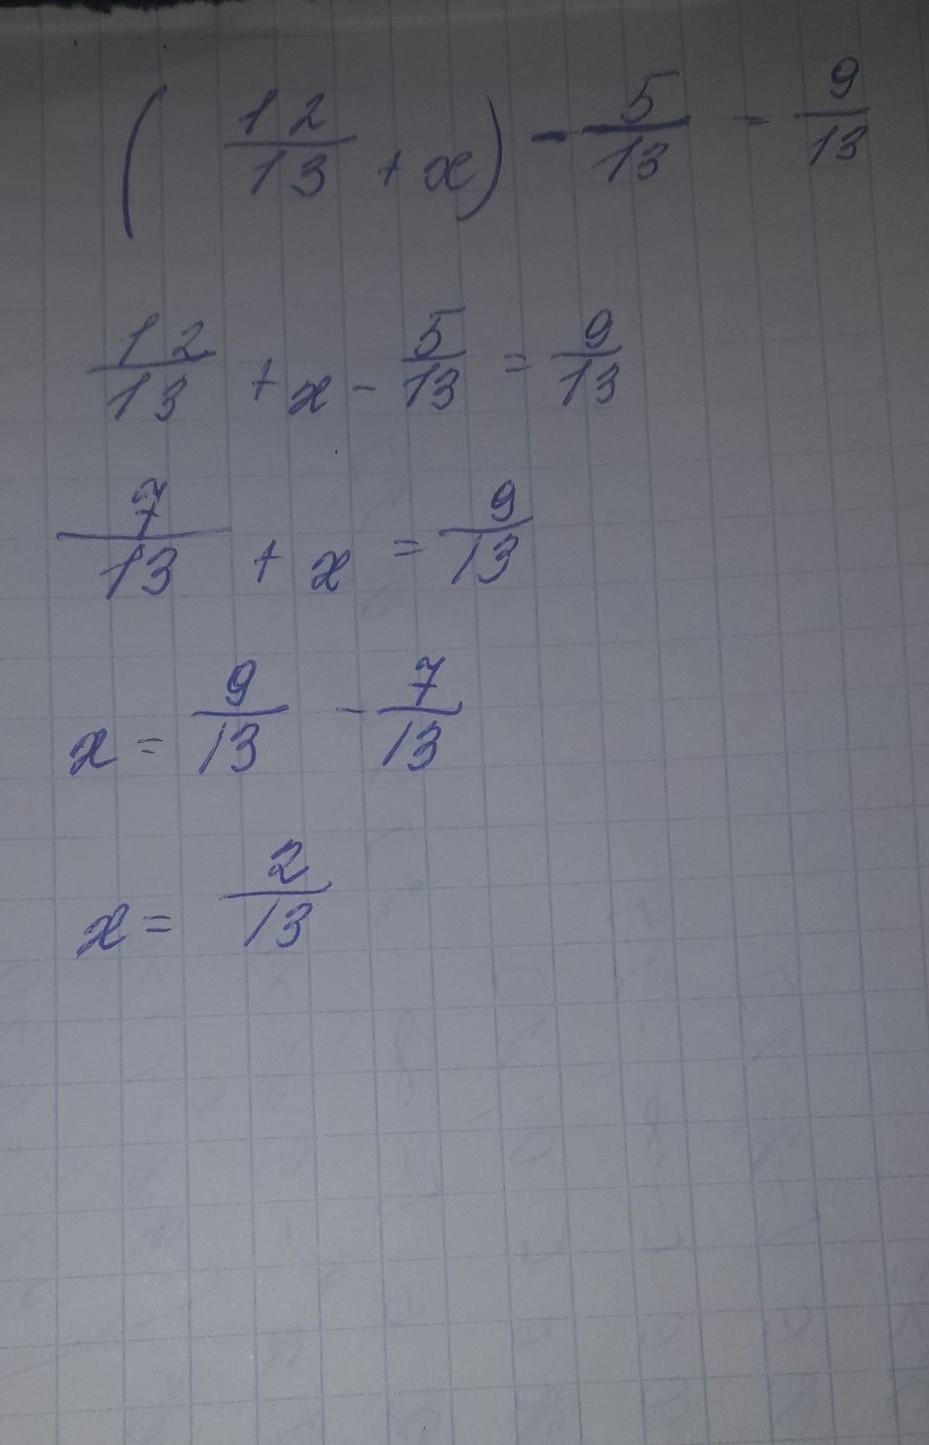 (12/13 + x) - 5/13 = 9/13
12/13 + x - 5/13 = 9/13
7/13 + x = 9/13
x = 9/13 - 7/13
x = 2/13